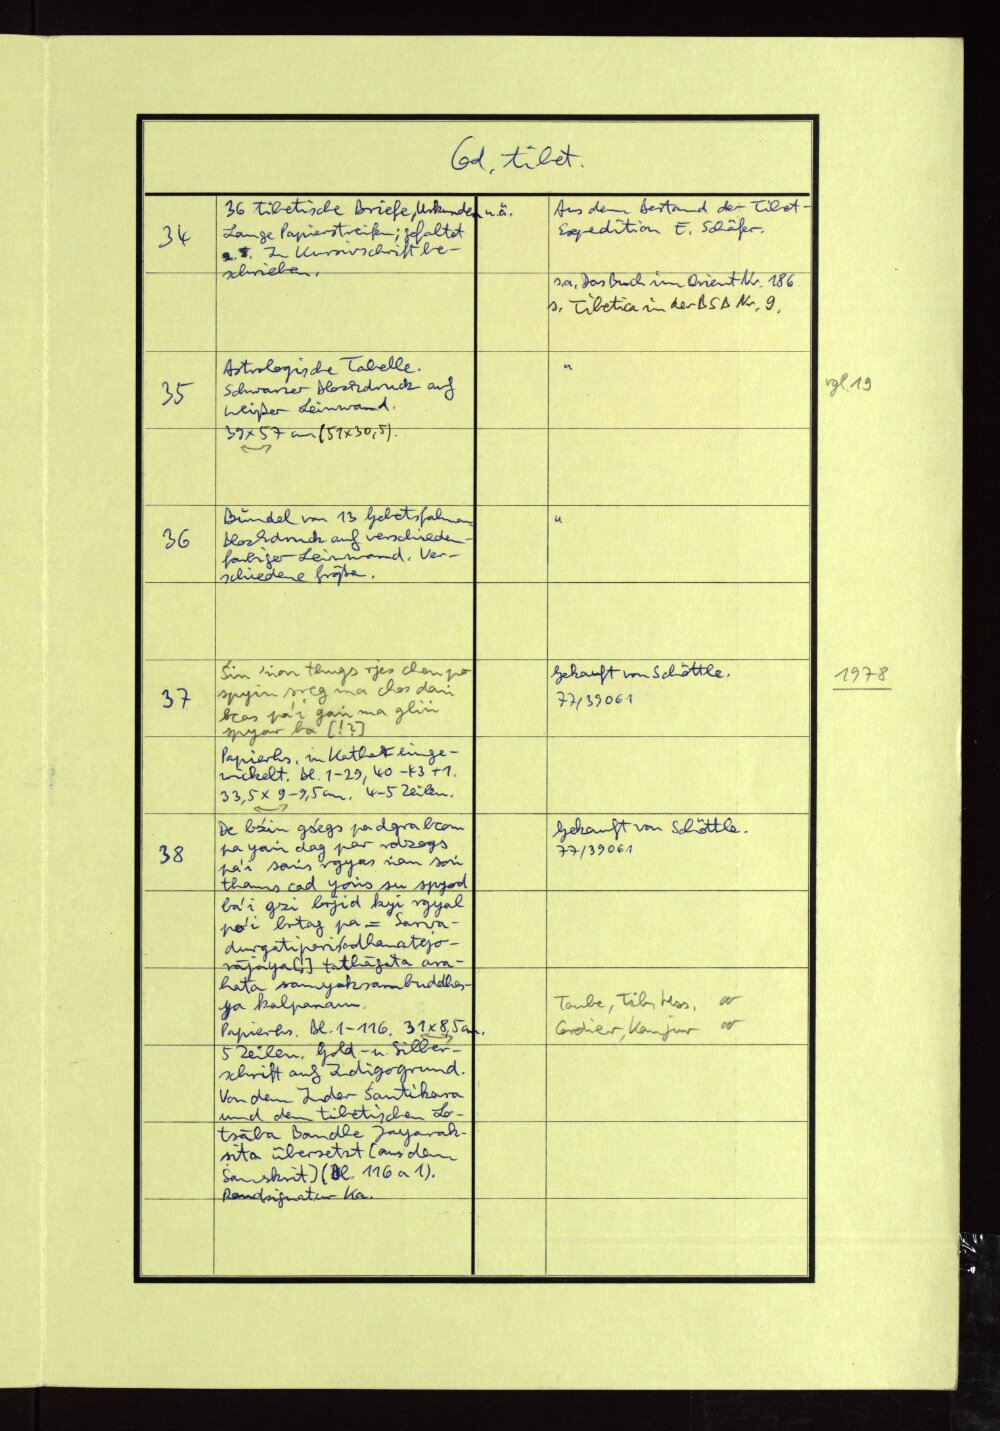 Cod. tibet.
34
36 tibetische Briefe, Urkunden u.ä.
Lange Papierstreifen; gefaltet
In Kursivschrift be-
schrieben.
Aus dem Bestand der Tibet-
Expedition E. Schäfer.
s.a. Das Buch im Orient Nr. 186
s. Tibetica in der BSB Nr. 9.
35
Astrologische Tabelle.
Schwarzer Blockdruck auf
weißer Leinwand.
39×57 cm (51×30,5).
"
vgl. 19
36
Bündel von 13 Gebetsfahnen
Blockdruck auf verschieden-
farbiger Leinwand. Ver-
schiedene Größe.
"
37
thugs rjes chen po
spyin sreg ma chos dań
bcas pa'i gań ma gliń
spyar ba [!?]
Papierhs. in Kathak einge-
wickelt. Bl. 1-29, 40-43+1.
33,5×9-9,5 cm. 4-5 Zeilen.
Gekauft von Schöttle.
77/39061
1978
38
De bźin gśegs pa dgra bcom
pa yań dag par rdzogs
pa'i sańs rgyas ńan soń
thams cad yońs su spyod
ba'i gzi brjid kyi rgyal
po'i brtag pa = Sarva-
durgatipariśodhanatejo-
rājāya[!] tathāgata ara-
hata samyaksambuddhas-
ya kalpanam.
Papierhs. Bl. 1-116. 31×8,5 cm.
5 Zeilen. Gold- u. Silber-
schrift auf Indigogrund.
Von dem Inder Śantikara
und dem tibetischen Lo-
tsāba Bandhe Jayarak-
sita übersetzt [aus dem
Sanskrit] (Bl. 116 a 1).
Randsignatur Ka.
Gekauft von Schöttle.
77/39061
Taube, Tib. Hss.
Cordier, Kanjur